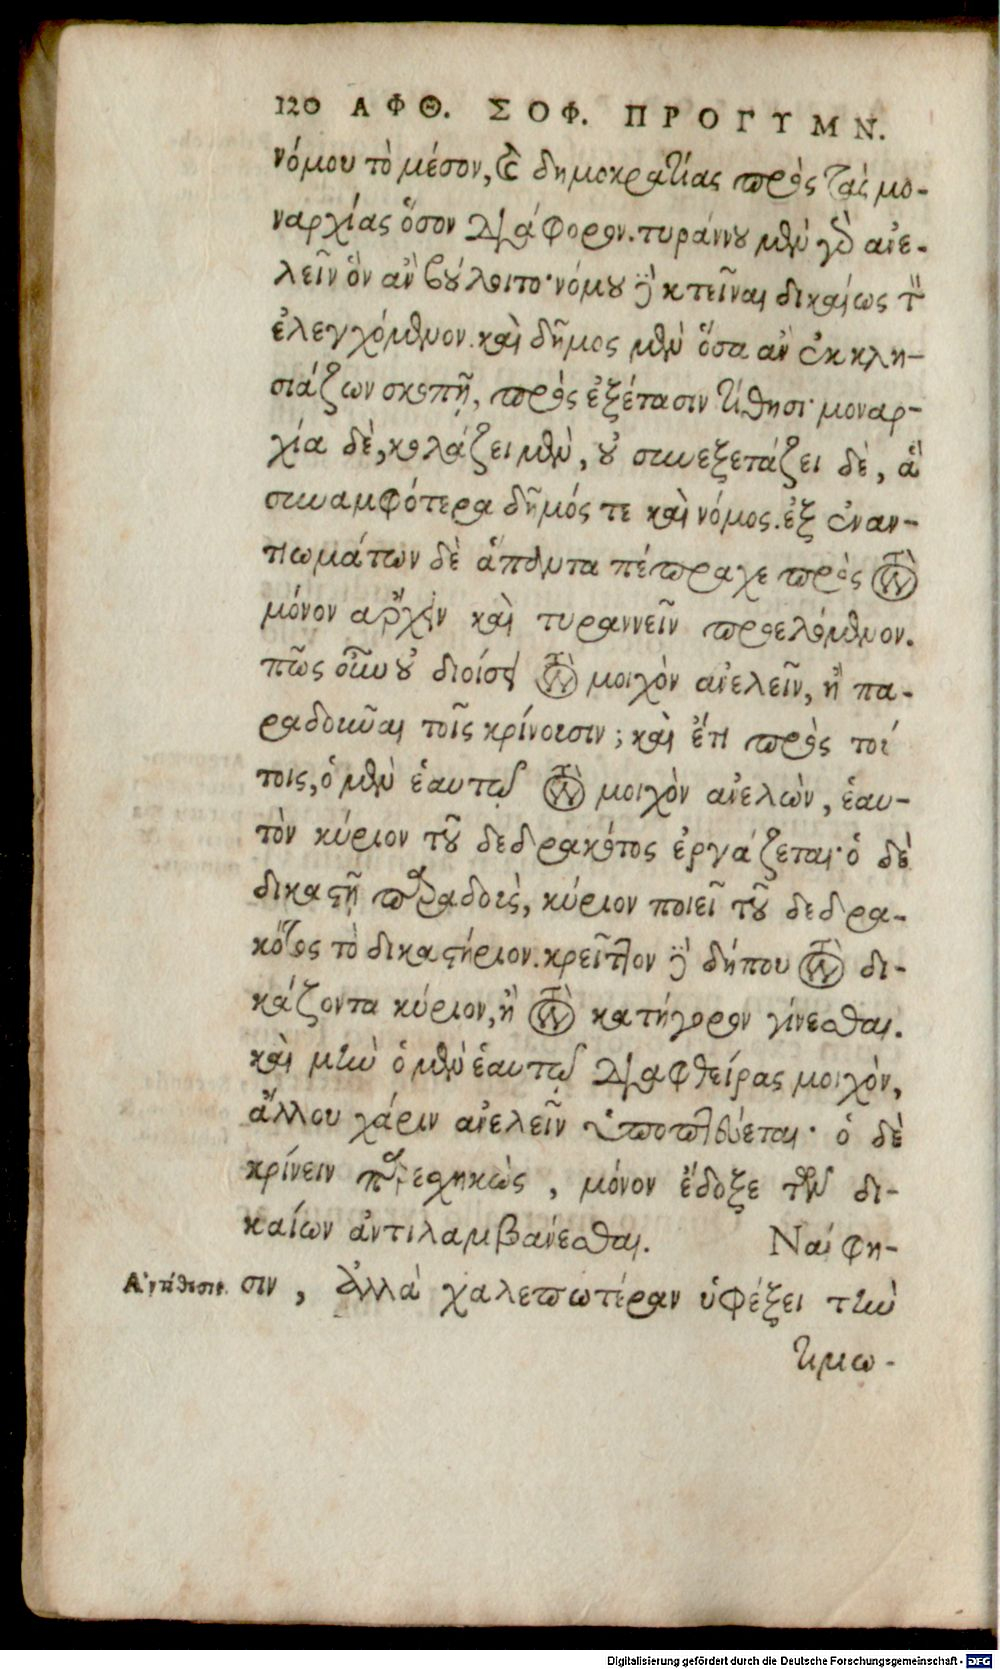 120 ΑΦΘ. ΣΟΦ. ΠΡΟΓΥΜΝ.
νόμου τὸ μέσον, καὶ δημοκρατίας πρὸς τὰς μο-
ναρχίας ὅσον διάφορον. τυράννου μὲν γὰρ ἀνε-
λεῖν ὃν ἂν βούλοιτο· νόμου δὲ κτεῖναι δικαίως τὸν
ἐλεγχόμενον. καὶ δῆμος μὲν ὅσα ἂν ἐκκλη-
σιάζων σκοπῇ, πρὸς ἐξέτασιν τίθησι· μοναρ-
χία δὲ, κολάζει μὲν, οὐ συνεξετάζει δὲ, ἃ
συναμφότερα δῆμός τε καὶ νόμος. ἐξ ἐναν-
τιωμάτων δὲ ἅπαντα πέπραχε πρὸς τὸν
μόνον ἄρχειν καὶ τυραννεῖν προελόμενον.
πῶς οὖν οὐ διοίσει τὸν μοιχὸν ἀνελεῖν, ἢ πα-
ραδοῦναι τοῖς κρίνουσιν; καὶ ἔτι πρὸς τού
τοις, ὁ μὲν ἑαυτῷ τὸν μοιχὸν ἀνελὼν, ἑαυ-
τὸν κύριον τοῦ δεδρακότος ἐργάζεται· ὁ δὲ
δικαστῇ παραδοὺς, κύριον ποιεῖ τοῦ δεδρα-
κότος τὸ δικαστήριον. κρεῖττον δὲ δήπου τὸν δι-
κάζοντα κύριον, ἢ τὸν κατήγορον γίνεσθαι.
καὶ μὴν ὁ μὲν ἑαυτῷ διαφθείρας μοιχὸν,
ἄλλου χάριν ἀνελεῖν ὑποπτεύεται· ὁ δὲ
κρίνειν παρεσχηκὼς, μόνον ἔδοξε τῶν δι-
καίων ἀντιλαμβάνεσθαι. Ναί φη-
Ἀντίθεσις. σιν, ἀλλὰ χαλεπωτέραν ὑφέξει τὴν
τιμω-
Digitalisierung gefördert durch die Deutsche Forschungsgemeinschaft - DFG